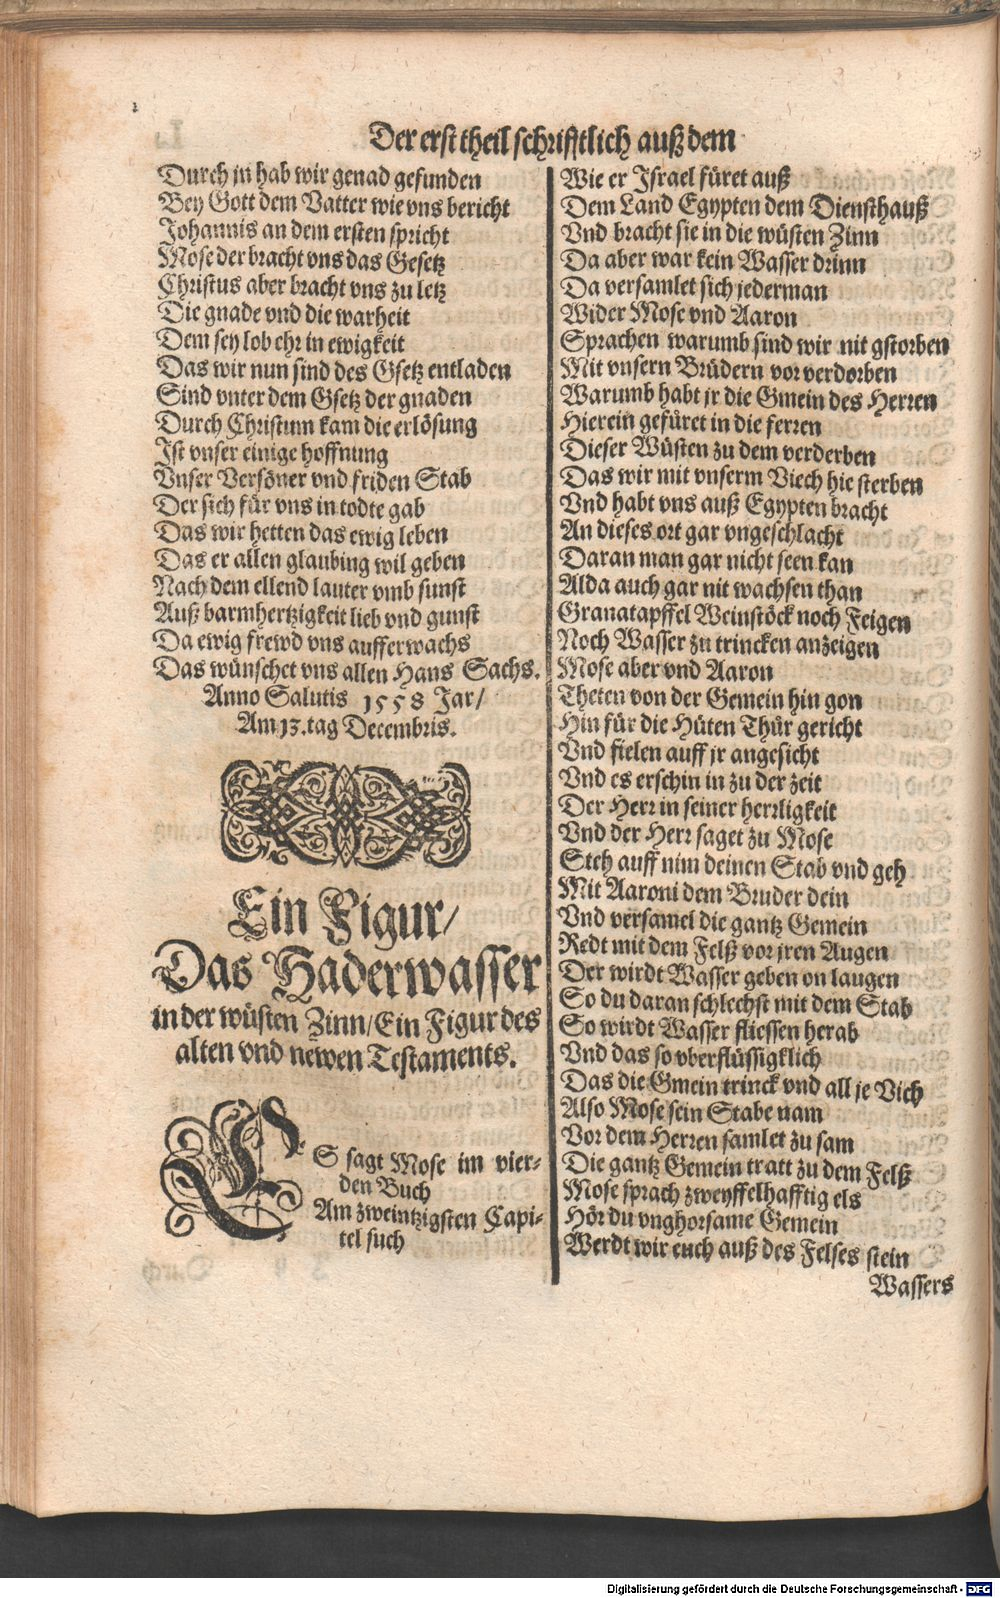 Der erst theil schrifftlich auß dem
Durch jn hab wir genad gefunden
Bey Gott dem Vatter wie vns bericht
Johannis an dem ersten spricht
Mose der bracht vns das Gesetz
Christus aber bracht vns zu letz
Die gnade vnd die warheit
Dem sey lob ehr in ewigkeit
Das wir nun sind des Gsetz entladen
Sind vnter dem Gsetz der gnaden
Durch Christum kam die erlösung
Ist vnser einige hoffnung
Vnser Versöner vnd friden Stab
Der sich für vns in todte gab
Das wir hetten das ewig leben
Das er allen glaubing wil geben
Nach dem ellend lauter vmb sunst
Auß barmhertzigkeit lieb vnd gunst
Da ewig frewd vns aufferwachs
Das wünschet vns allen Hans Sachs.
Anno Salutis 1558 Jar/
Am 13. tag Decembris.
Ein Figur/
Das Haderwasser
in der wüsten Zinn/Ein Figur des
alten vnd newen Testaments.
ES sagt Mose im vier-
den Buch
Am zweintzigsten Capi-
tel such
Wie er Israel füret auß
Dem Land Egypten dem Diensthauß
Vnd bracht sie in die wüsten Zinn
Da aber war kein Wasser drinn
Da versamlet sich jederman
Wider Mose vnd Aaron
Sprachen warumb sind wir nit gstorben
Mit vnsern Brüdern vor verdorben
Warumb habt jr die Gmein des Herren
Hierein gefüret in die ferren
Dieser Wüsten zu dem verderben
Das wir mit vnserm Viech hie sterben
Vnd habt vns auß Egypten bracht
An dieses ort gar vngeschlacht
Daran man gar nicht seen kan
Alda auch gar nit wachsen than
Granatapffel Weinstöck noch Feigen
Noch Wasser zu trincken anzeigen
Mose aber vnd Aaron
Theten von der Gemein hin gon
Hin für die Hüten Thür gericht
Vnd fielen auff jr angesicht
Vnd es erschin in zu der zeit
Der Herr in seiner herrligkeit
Vnd der Herr saget zu Mose
Steh auff nim deinen Stab vnd geh
Mit Aaroni dem Bruder dein
Vnd versamel die gantz Gemein
Redt mit dem Felß vor jren Augen
Der wirdt Wasser geben on laugen
So du daran schlechst mit dem Stab
So wirdt Wasser fliessen herab
Vnd das so vberflüssigklich
Das die Gmein trinck vnd all je Vich
Also Mose sein Stabe nam
Vor dem Herren samlet zu sam
Die gantz Gemein tratt zu dem Felß
Mose sprach zweyffelhafftig els
Hör du vnghorsame Gemein
Werdt wir euch auß des Felses stein
Wassers
Digitalisierung gefördert durch die Deutsche Forschungsgemeinschaft - DFG